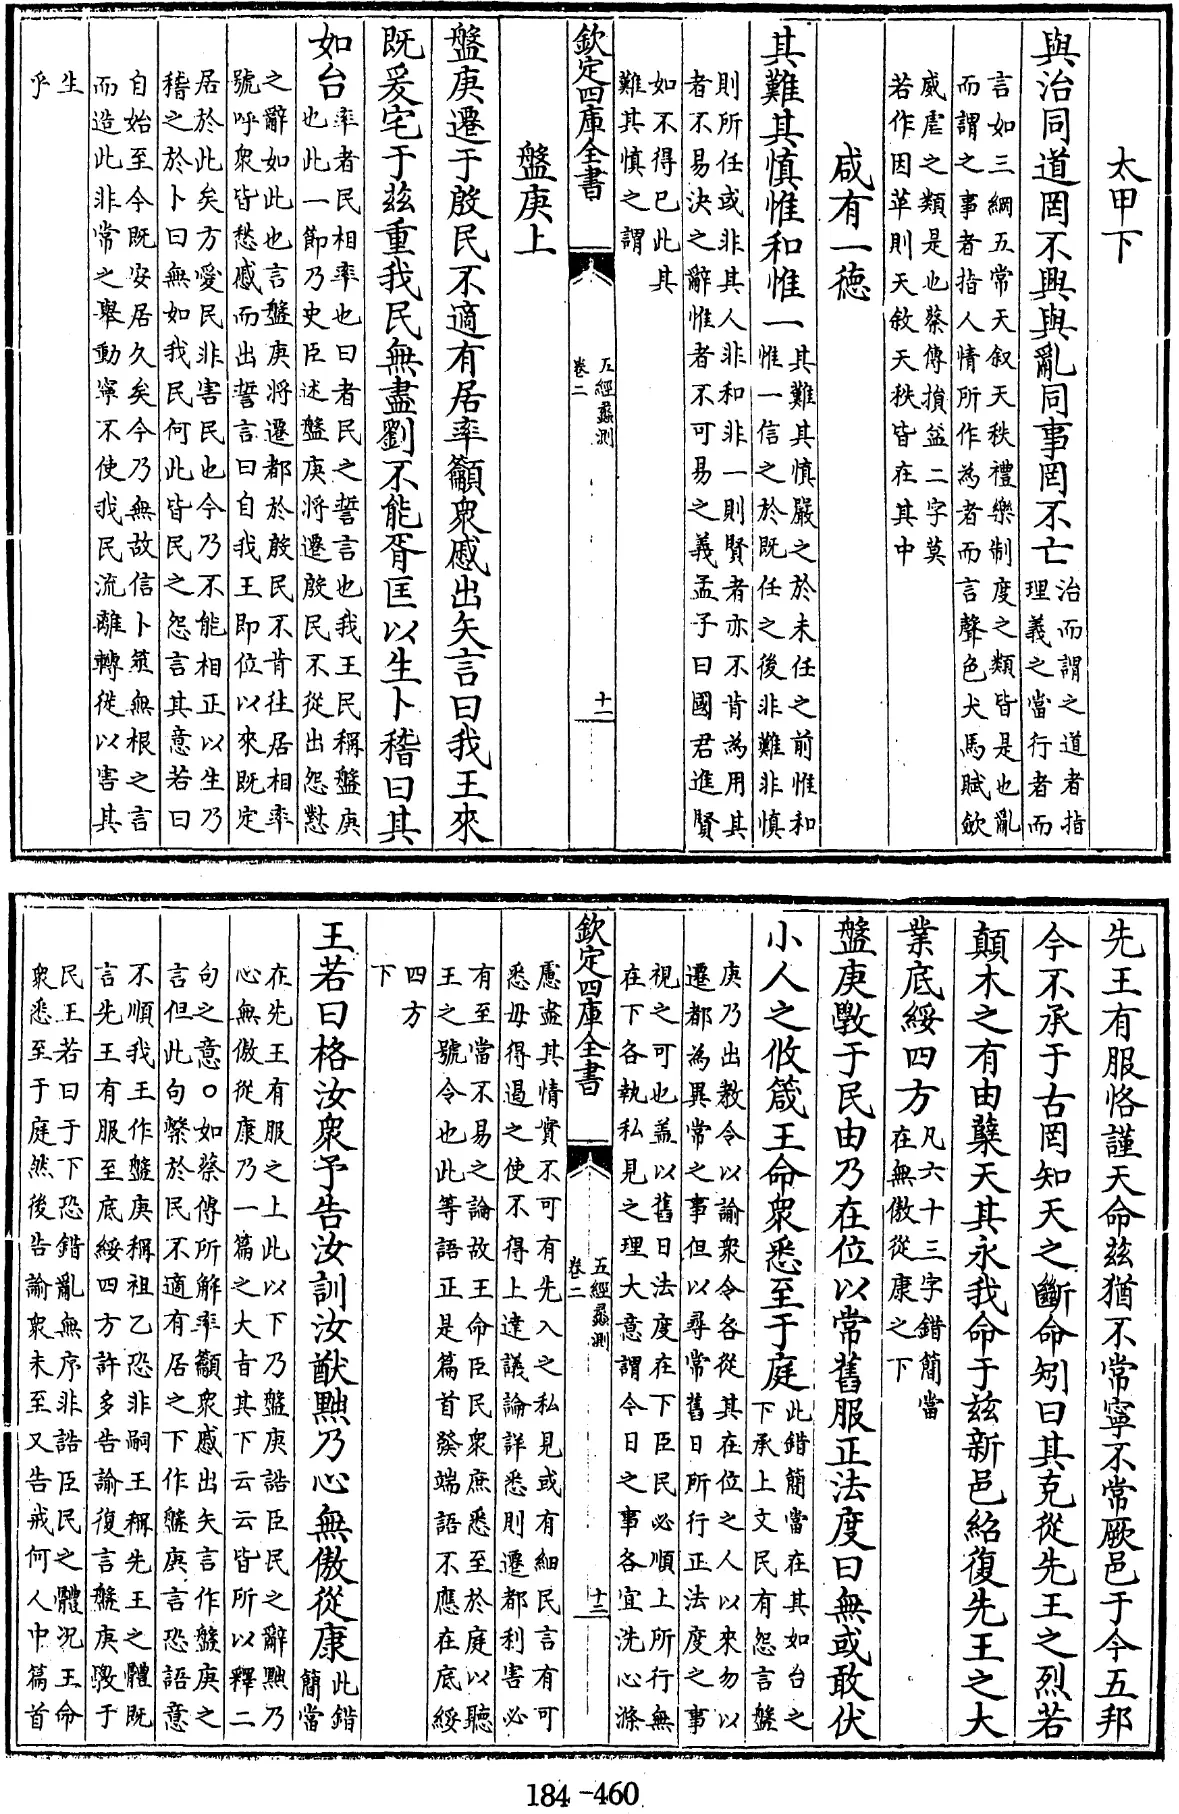 太甲下
與治同道罔不興與亂同事罔不亡治而謂之道者指
理義之當行者而
言如三綱五常天叙天秩禮樂制度之類皆是也亂
而謂之事者指人情所作為者而言聲色犬馬賦歛
威虐之類是也蔡傳損益二字莫
若作因革則天敘天秩皆在其中
咸有一德
其難其慎惟和惟一其難其慎嚴之於未任之前惟和
惟一信之於既任之後非難非慎
則所任或非其人非和非一則賢者亦不肯為用其
者不易決之辭惟者不可易之義孟子曰國君進賢
如不得已此其
難其慎之謂
欽定四庫全書
五經蠡測
卷二
十一
盤庚上
盤庚遷于殷民不適有居率籲衆慼出矢言曰我王來
既爰宅于茲重我民無盡劉不能胥匡以生卜稽曰其
如台率者民相率也曰者民之誓言也我王民稱盤庚
也此一節乃史臣述盤庚將遷殷民不從出怨懟
之辭如此也言盤庚將遷都於殷民不肯往居相率
號呼衆皆愁慼而出誓言曰自我王即位以來既定
居於此矣方愛民非害民也今乃不能相正以生乃
稽之於卜曰無如我民何此皆民之怨言其意若曰
自始至今既安居久矣今乃無故信卜筮無根之言
而造此非常之舉動寧不使我民流離轉徙以害其
生
乎
先王有服恪謹天命茲猶不常寧不常厥邑于今五邦
今不承于古罔知天之斷命矧曰其克從先王之烈若
顛木之有由蘖天其永我命于茲新邑紹復先王之大
業底綏四方凡六十三字錯簡當
在無傲從康之下
盤庚斆于民由乃在位以常舊服正法度曰無或敢伏
小人之攸箴王命衆悉至于庭此錯簡當在其如台之
下承上文民有怨言盤
庚乃出教令以諭衆令各從其在位之人以來勿以
遷都為異常之事但以尋常舊日所行正法度之事
視之可也蓋以舊日法度在下臣民必順上所行無
在下各執私見之理大意謂今日之事各宜洗心滌
欽定四庫全書
五經蠡測
卷二
十二
慮盡其情實不可有先入之私見或有細民言有可
悉毋得遏之使不得上達議論詳悉則遷都利害必
有至當不易之論故王命臣民衆庶悉至於庭以聽
王之號令也此等語正是篇首發端語不應在底綏
四方
下
王若曰格汝衆予告汝訓汝猷黜乃心無傲從康此錯
簡當
在先王有服之上此以下乃盤庚誥臣民之辭黜乃
心無傲從康乃一篇之大旨其下云云皆所以釋二
句之意○如蔡傳所解率籲衆慼出矢言作盤庚之
言但此句繫於民不適有居之下作盤庚言恐語意
不順我王作盤庚稱祖乙恐非嗣王稱先王之體既
言先王有服至底綏四方許多告諭復言盤庚斆于
民王若曰于下恐錯亂無序非誥臣民之體況王命
衆悉至于庭然後告諭衆未至又告戒何人中篇首
184-460